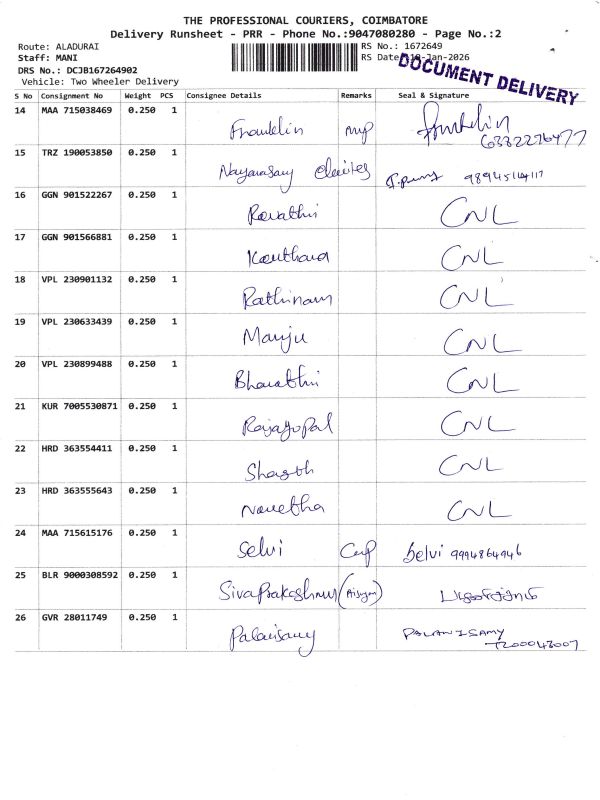 THE PROFESSIONAL COURIERS, COIMBATORE
Delivery Runsheet - PRR - Phone No.:9047080280 - Page No.:2
Route: ALADURAI
RS No.: 1672649
Staff: MANI
RS Date: -Jan-2026
DRS No.: DCJB167264902
DOCUMENT DELIVERY
Vehicle: Two Wheeler Delivery
S No Consignment No Weight PCS Consignee Details Remarks Seal & Signature
14 MAA 715038469 0.250 1 Franklin
15 TRZ 190053850 0.250 1
16 GGN 901522267 0.250 1 Revathi CNL
17 GGN 901566881 0.250 1 CNL
18 VPL 230901132 0.250 1 Rathinam CNL
19 VPL 230633439 0.250 1 Manju CNL
20 VPL 230899488 0.250 1 Bharathi CNL
21 KUR 7005530871 0.250 1 Rajagopal CNL
22 HRD 363554411 0.250 1 CNL
23 HRD 363555643 0.250 1 CNL
24 MAA 715615176 0.250 1 Selvi Selvi 9994864946
25 BLR 9000308592 0.250 1 SivaPrakashnum
26 GVR 28011749 0.250 1 Palanisamy PALANISAMY
7200043007